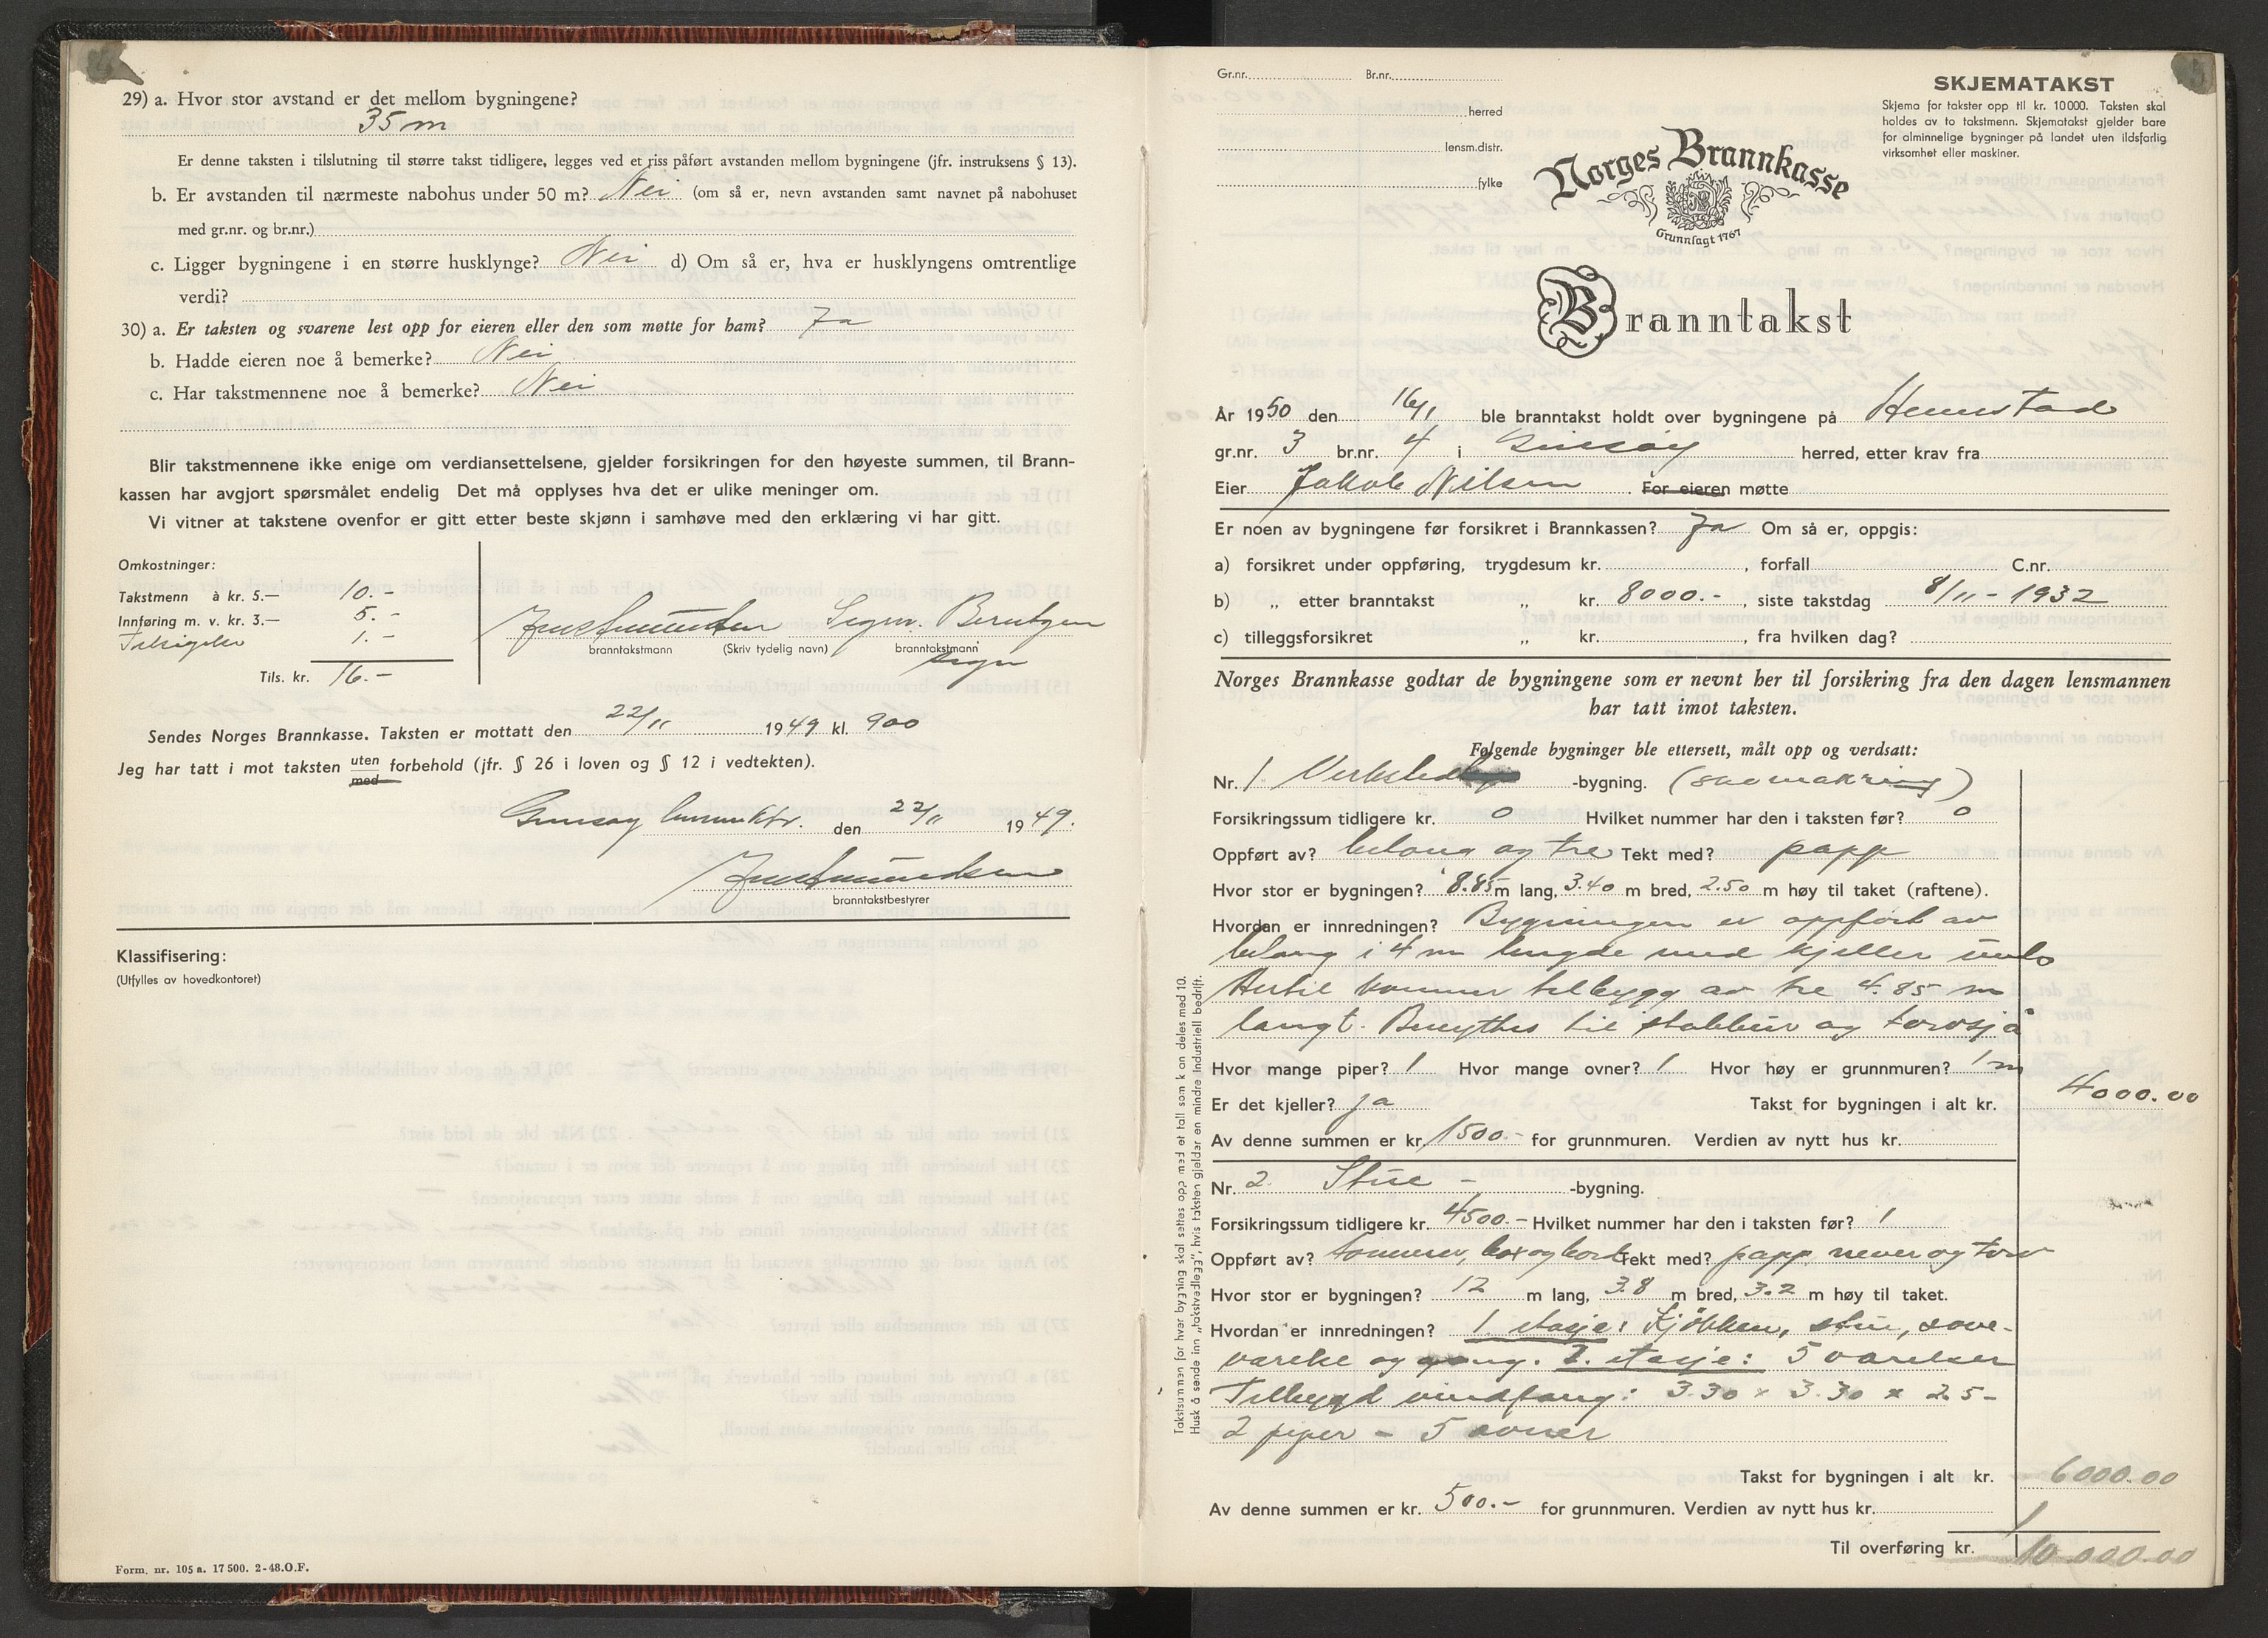 29) a. Hvor stor avstand er det mellom bygningene?
35 m
Er denne taksten i tilslutning til større takst tidligere, legges ved et riss påført avstanden mellom bygningene (jfr. instruksens § 13).
b. Er avstanden til nærmeste nabohus under 50 m? Nei (om så er, nevn avstanden samt navnet på nabohuset
med gr.nr. og br.nr.)
c. Ligger bygningene i en større husklynge? Nei d) Om så er, hva er husklyngens omtrentlige
verdi?
30) a. Er taksten og svarene lest opp for eieren eller den som møtte for ham? Ja
b. Hadde eieren noe å bemerke? Nei
c. Har takstmennene noe å bemerke? Nei
Blir takstmennene ikke enige om verdiansettelsene, gjelder forsikringen for den høyeste summen, til Brann-
kassen har avgjort spørsmålet endelig Det må opplyses hva det er ulike meninger om.
Vi vitner at takstene ovenfor er gitt etter beste skjønn i samhøve med den erklæring vi har gitt.
Omkostninger:
Takstmenn à kr. 5.— 10.-
Innføring m. v. kr. 3.— 5.-
1.-
Tils. kr. 16.-
Sigm. Berntzen
branntakstmann (Skriv tydelig navn) branntakstmann
sign
Sendes Norges Brannkasse. Taksten er mottatt den 22/11 1949 kl. 900
Jeg har tatt i mot taksten uten med forbehold (jfr. § 26 i loven og § 12 i vedtekten).
Gimsøy den 22/11 1949.
branntakstbestyrer
Klassifisering:
(Utfylles av hovedkontoret)
Form. nr. 105 a. 17 500. 2-48.O.F.
Gr.nr. Br.nr.
herred
lensm.distr.
fylke
SKJEMATAKST
Skjema for takster opp til kr. 10000. Taksten skal
holdes av to takstmenn. Skjematakst gjelder bare
for alminnelige bygninger på landet uten ildsfarlig
virksomhet eller maskiner.
Norges Brannkasse
Grunnlagt 1767
Branntakst
År 1950 den 16/1 ble branntakst holdt over bygningene på
gr.nr. 3 br.nr. 4 i Gimsøy herred, etter krav fra
Eier Jakob Nilsen For eieren møtte
Er noen av bygningene før forsikret i Brannkassen? Ja Om så er, oppgis:
a) forsikret under oppføring, trygdesum kr. , forfall C.nr.
b) „ etter branntakst „ kr. 8000.- , siste takstdag 8/11 - 1932
c) tilleggsforsikret „ kr. , fra hvilken dag?
Norges Brannkasse godtar de bygningene som er nevnt her til forsikring fra den dagen lensmannen
har tatt imot taksten.
Følgende bygninger ble ettersett, målt opp og verdsatt:
Nr. 1 Verksted -bygning. (skomakring)
Forsikringssum tidligere kr. 0 Hvilket nummer har den i taksten før? 0
Oppført av? betong og tre Tekt med? papp
Hvor stor er bygningen? 8.85 m lang, 3.40 m bred, 2.50 m høy til taket (raftene).
Hvordan er innredningen? Bygningen er oppført av
betong i 4 m lengde med kjeller under
Hertil kommer tilbygg av tre 4.85 m
langt. Benyttes til stabbur og torvsjå
Hvor mange piper? 1 Hvor mange ovner? 1 Hvor høy er grunnmuren? 1 m
Er det kjeller? ja Takst for bygningen i alt kr. 4000.00
Av denne summen er kr. 1500.- for grunnmuren. Verdien av nytt hus kr.
Nr. 2 Stue - -bygning.
Forsikringssum tidligere kr. 4500.- Hvilket nummer har den i taksten før? 1
Oppført av? tømmer, og bord Tekt med? papp, never og torv
Hvor stor er bygningen? 12 m lang, 3.8 m bred, 3.2 m høy til taket.
Hvordan er innredningen? 1. etasje: Kjøkken, stue, sove-
værelse og gang. 2. etasje: 5 værelser
Tilbygd vindfang: 3.30 x 3.30 x 2.5-
2 piper - 5 ovner
Takst for bygningen i alt kr. 6000.00
Av denne summen er kr. 500.- for grunnmuren. Verdien av nytt hus kr.
Til overføring kr. 10.000.00
Takstsummen for hver bygning skal settes opp med et tall som kan deles med 10.
Husk å sende inn „takstvedlegg", hvis taksten gjelder en mindre industriell bedrift.